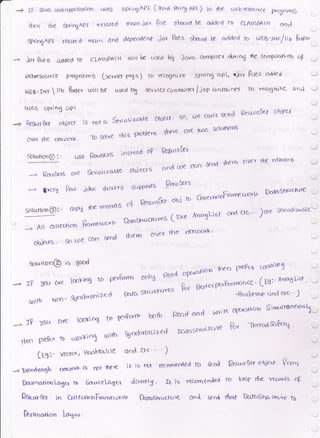 → If Java webapplication uses spring API (third party API) in the webresource programs
then the springAPI related main jar file should be added to CLASSPATH and
springAPI related main and dependent jar files should be added to WEB-INF/lib folder
→ jar files added to CLASSPATH will be used by Java compiler during the compilation of
webresource programs (servlet prgs) to recognize spring api, jar files added
WEB-INF/lib folder will be used by servlet container/jsp container to recognize and
uses spring api
→ ResultSet object is not a Serializable object. so, we can't send ResultSet object
over the network. To solve this problem there are two solutions
Solution①:- use RowSets instead of ResultSet
→ RowSets are Serializable objects and we can send them over the network.
→ Every jdbc drivers supports RowSets
Solution②:- copy the records of ResultSet obj to CollectionFramework DataStructure
→ All collection framework DataStructures (like ArrayList and etc...) are Serializable
objects. so we can send them over the network.
Solution② is good
→ If you are looking to perform only Read operation then prefer working
with Non-Synchronized Data Structures for Better performance. (Eg:- ArrayList,
HashMap and etc...)
→ If you are looking to perform both Read and write operation Simultaneously
then prefer to working with Synchronized DataStructure for ThreadSafety.
(Eg:- vector, HashTable and etc ...)
→ Eventhough network is not there it is not recommended to send ResultSet object from
DestinationLayer to SourceLayer directly. It is recommended to keep the records of
ResultSet in CollectionFramework DataStructure and send that DataStructure to
Destination Layer.